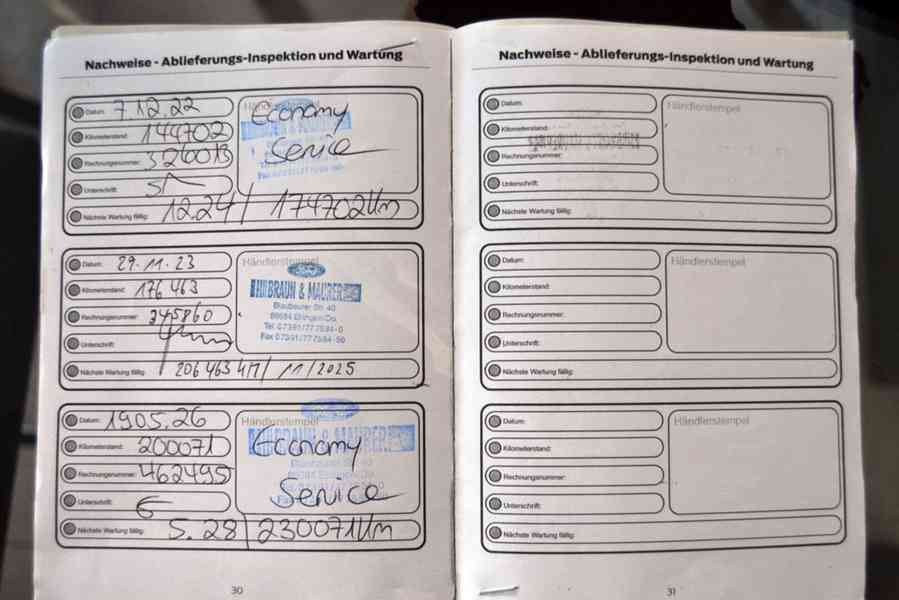 Nachweise - Ablieferungs-Inspektion und Wartung
Datum: 7.12.22
Kilometerstand: 144702
Rechnungsnummer:
Unterschrift:
Nächste Wartung fällig: 12.24 / 174702 Km
Händlerstempel
Economy
Service
Datum: 29.11.23
Kilometerstand: 176 463
Rechnungsnummer: 245860
Unterschrift:
Nächste Wartung fällig: 206 463 KM / 11/2025
Händlerstempel
Ford
BRAUN & MAURER
Blaubeurer Str. 40
Ehingen/Do.
Tel. 07391/77 75 84-0
Fax 07391/77 75 84-50
Datum: 19.05.26
Kilometerstand: 200071
Rechnungsnummer: 462495
Unterschrift:
Nächste Wartung fällig: 5.28 / 230071 Km
Händlerstempel
BRAUN & MAURER
Economy
Service
30
Nachweise - Ablieferungs-Inspektion und Wartung
Datum:
Kilometerstand:
Rechnungsnummer:
Unterschrift:
Nächste Wartung fällig:
Händlerstempel
Datum:
Kilometerstand:
Rechnungsnummer:
Unterschrift:
Nächste Wartung fällig:
Händlerstempel
Datum:
Kilometerstand:
Rechnungsnummer:
Unterschrift:
Nächste Wartung fällig:
Händlerstempel
31